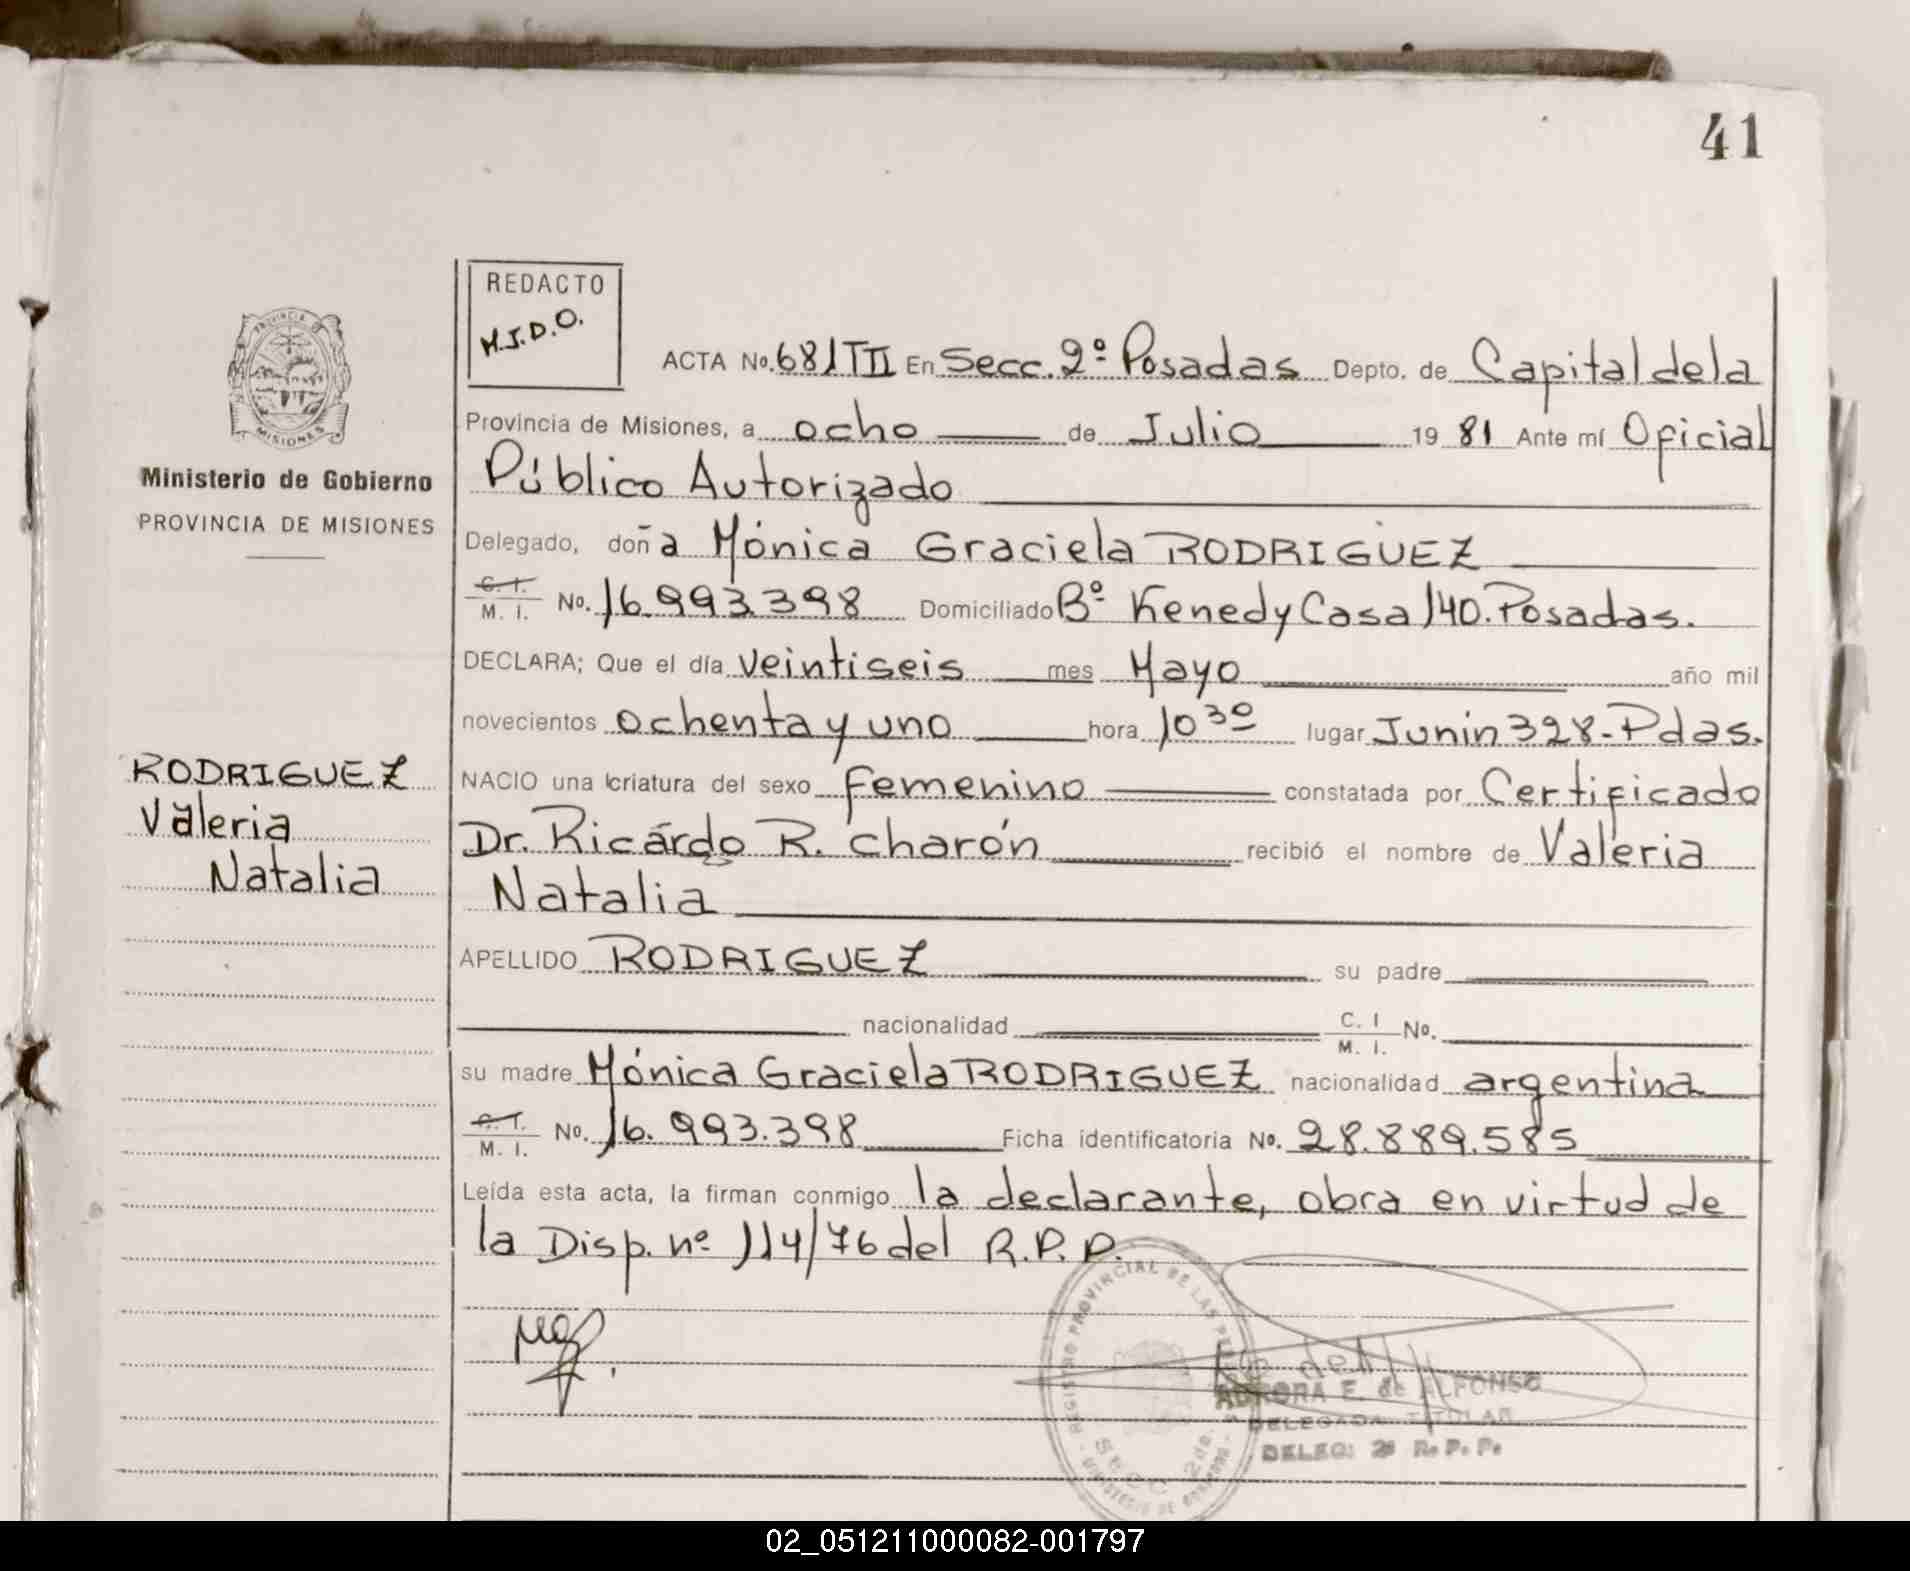 41
REDACTO
M.J.D.O.
PROVINCIA D
MISIONES
Ministerio de Gobierno
PROVINCIA DE MISIONES
RODRIGUEZ
Valeria
Natalia
ACTA No. 681 TII En Secc. 2º Posadas Depto. de Capital de la
Provincia de Misiones, a ocho de Julio 19 81 Ante mí Oficial
Público Autorizado
Delegado, doña Mónica Graciela RODRIGUEZ
C. I.
M. I. No. 16.993.398 Domiciliado Bº Kenedy Casa 140. Posadas.
DECLARA; Que el día veintiseis mes Mayo año mil
novecientos ochenta y uno hora 10 30 lugar Junin 328.-Pdas.
NACIO una criatura del sexo femenino constatada por Certificado
Dr. Ricardo R. Charón recibió el nombre de Valeria
Natalia
APELLIDO RODRIGUEZ su padre
nacionalidad C. I
M. I. No.
su madre Mónica Graciela RODRIGUEZ nacionalidad argentina
C. I.
M. I. No. 16.993.398 Ficha identificatoria No. 28.889.585
Leída esta acta, la firman conmigo la declarante, obra en virtud de
la Disp. nº 114/76 del R.P.P.
REGISTRO PROVINCIAL DE LAS
Secc 2da.
MINISTERIO DE GOBIERNO
AURORA E. de ALFONSO
DELEGADA TITULAR
DELEG: 2ª R. P. P.
02_051211000082-001797